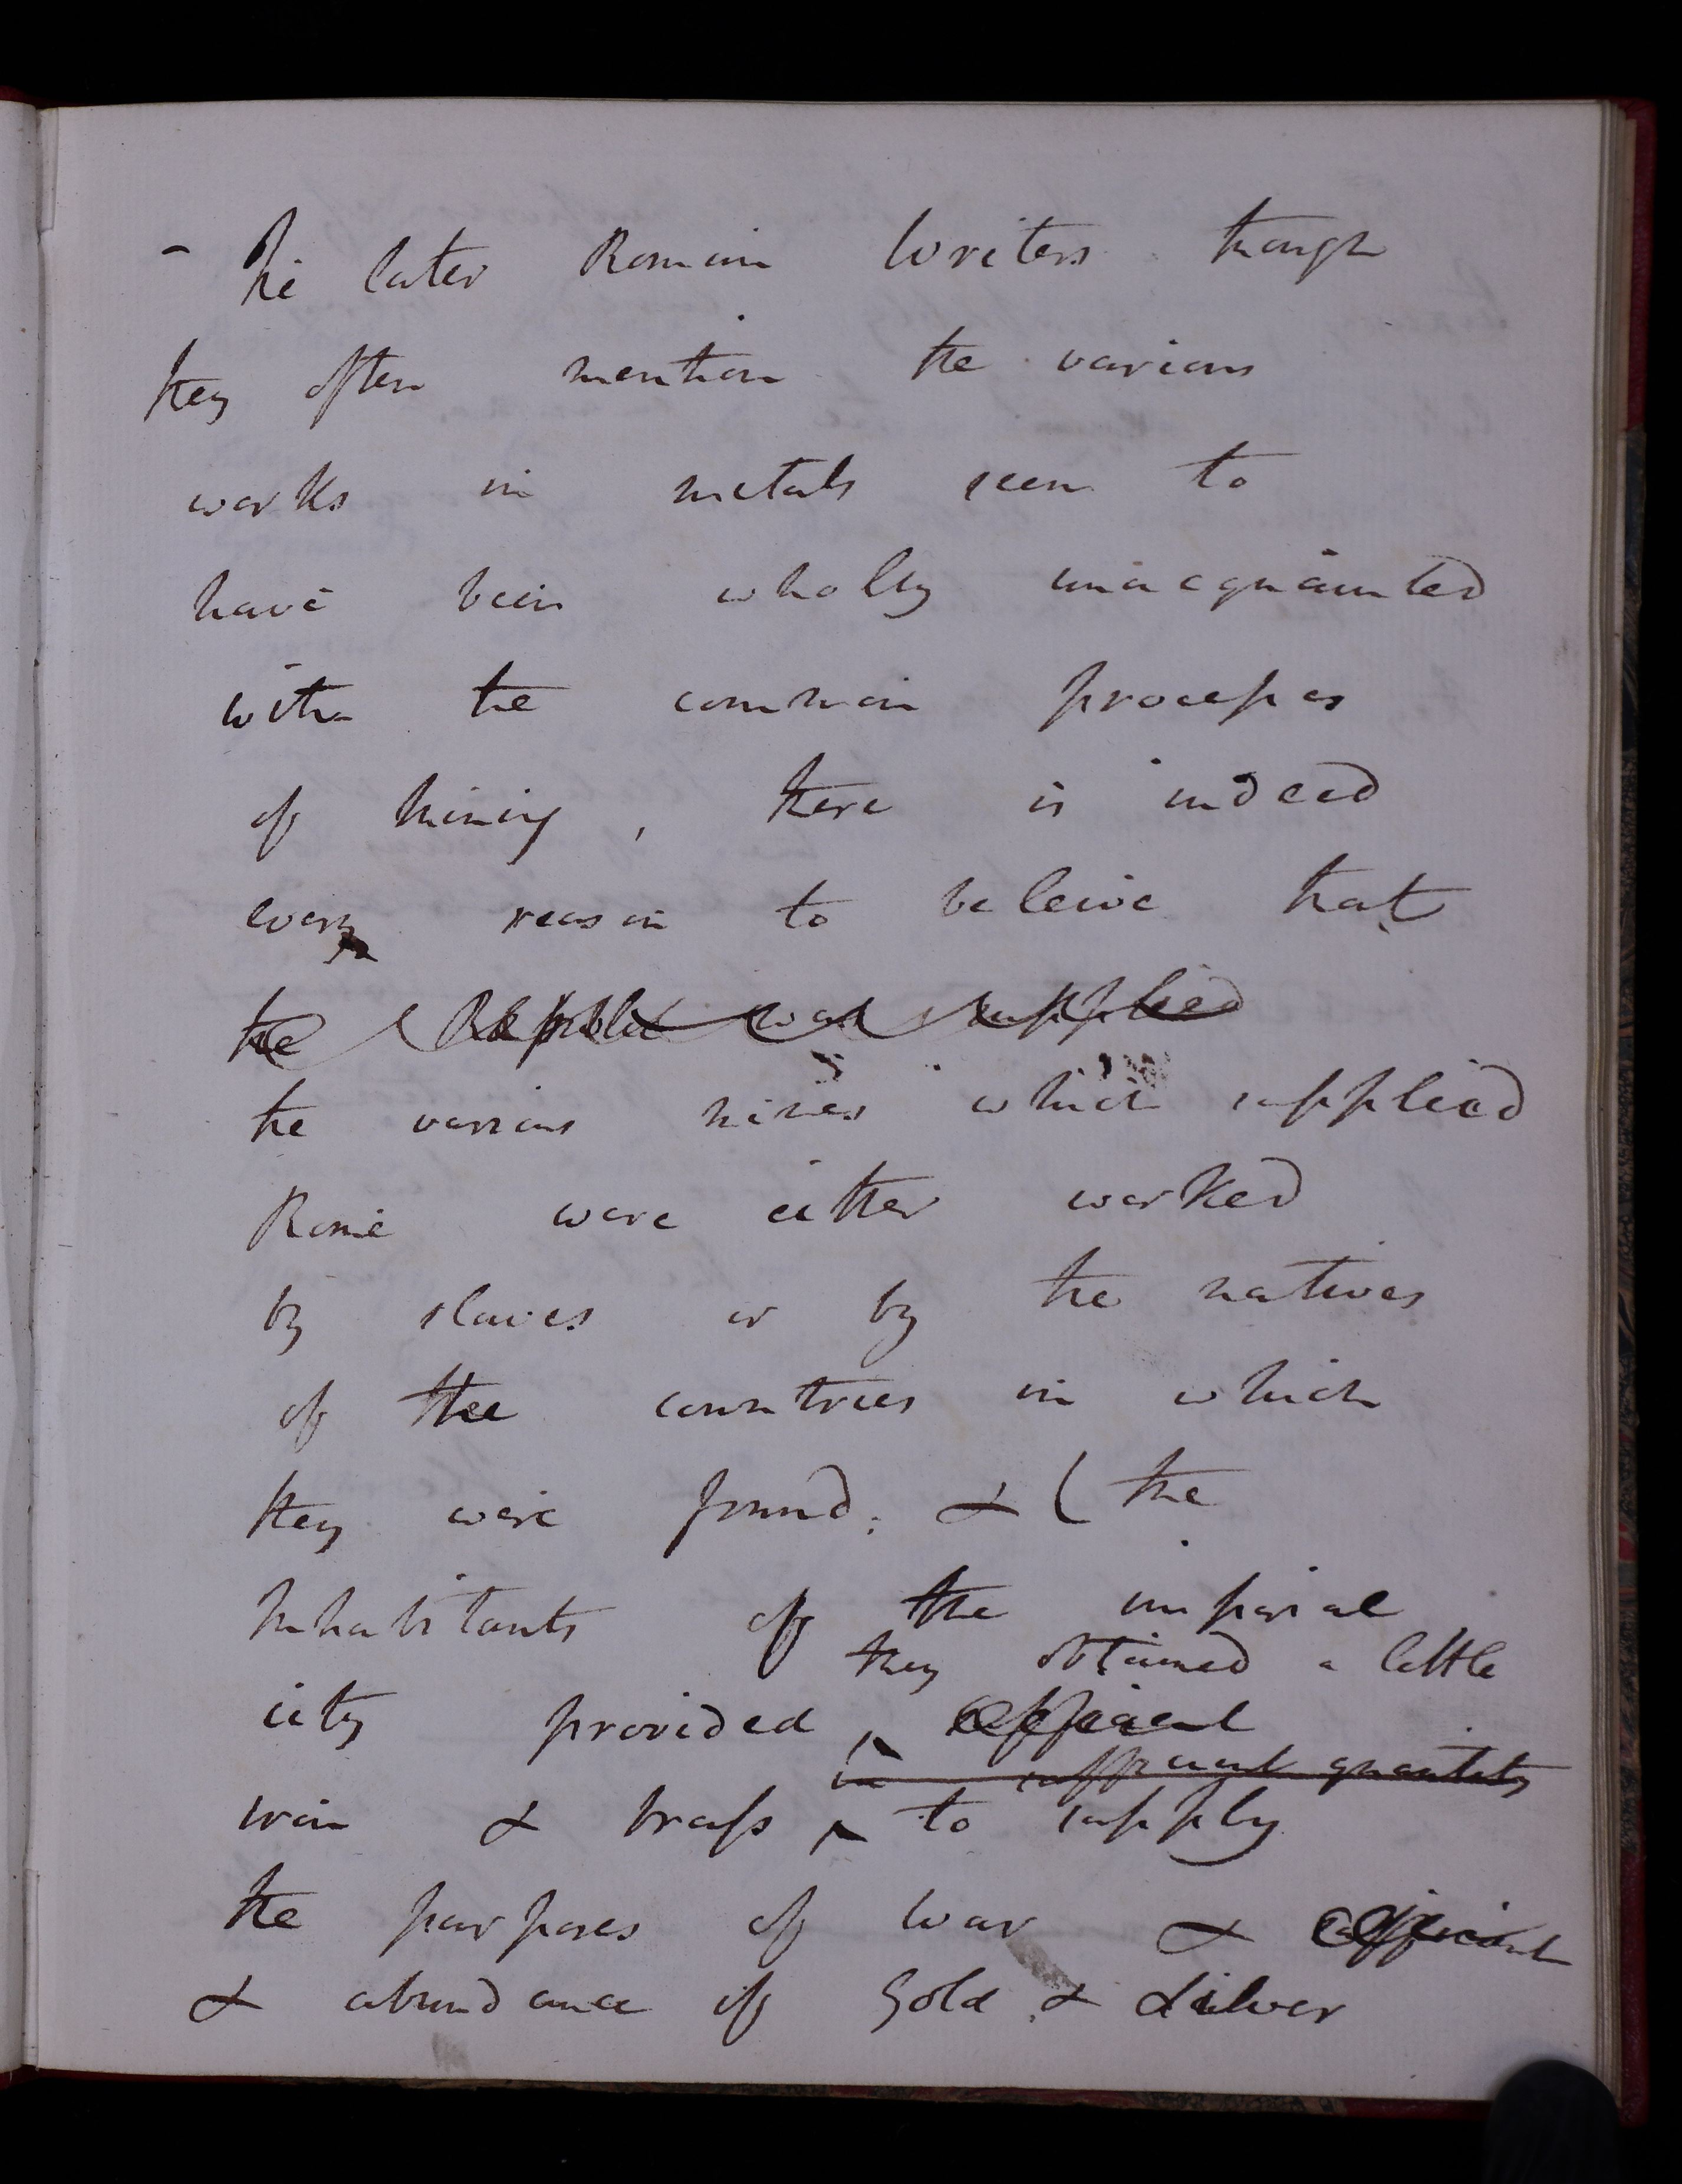 - The later Roman Writers though
they often mention the various
works in metals seem to
have been wholly unacquainted
with the common processes
of Mining, there is indeed
every reason to beleive that
the Republic was supplied
the various mines which supplied
Rome were either worked
by slaves or by the natives
of the countries in which
they were found; & (the
Inhabitants of the imperial
they obtained a little
city provided
in sufficient quantity
iron & brass to supply
the purposes of war &
& abundance of Gold & Silver